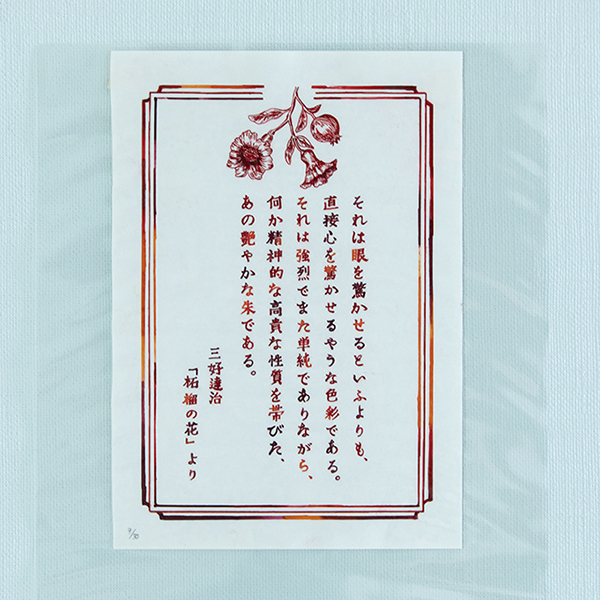 それは眼を驚かせるといふよりも、
直接心を驚かせるやうな色彩である。
それは強烈でまた単純でありながら、
何か精神的な高貴な性質を帯びた、
あの艶やかな朱である。
三好達治
「柘榴の花」より